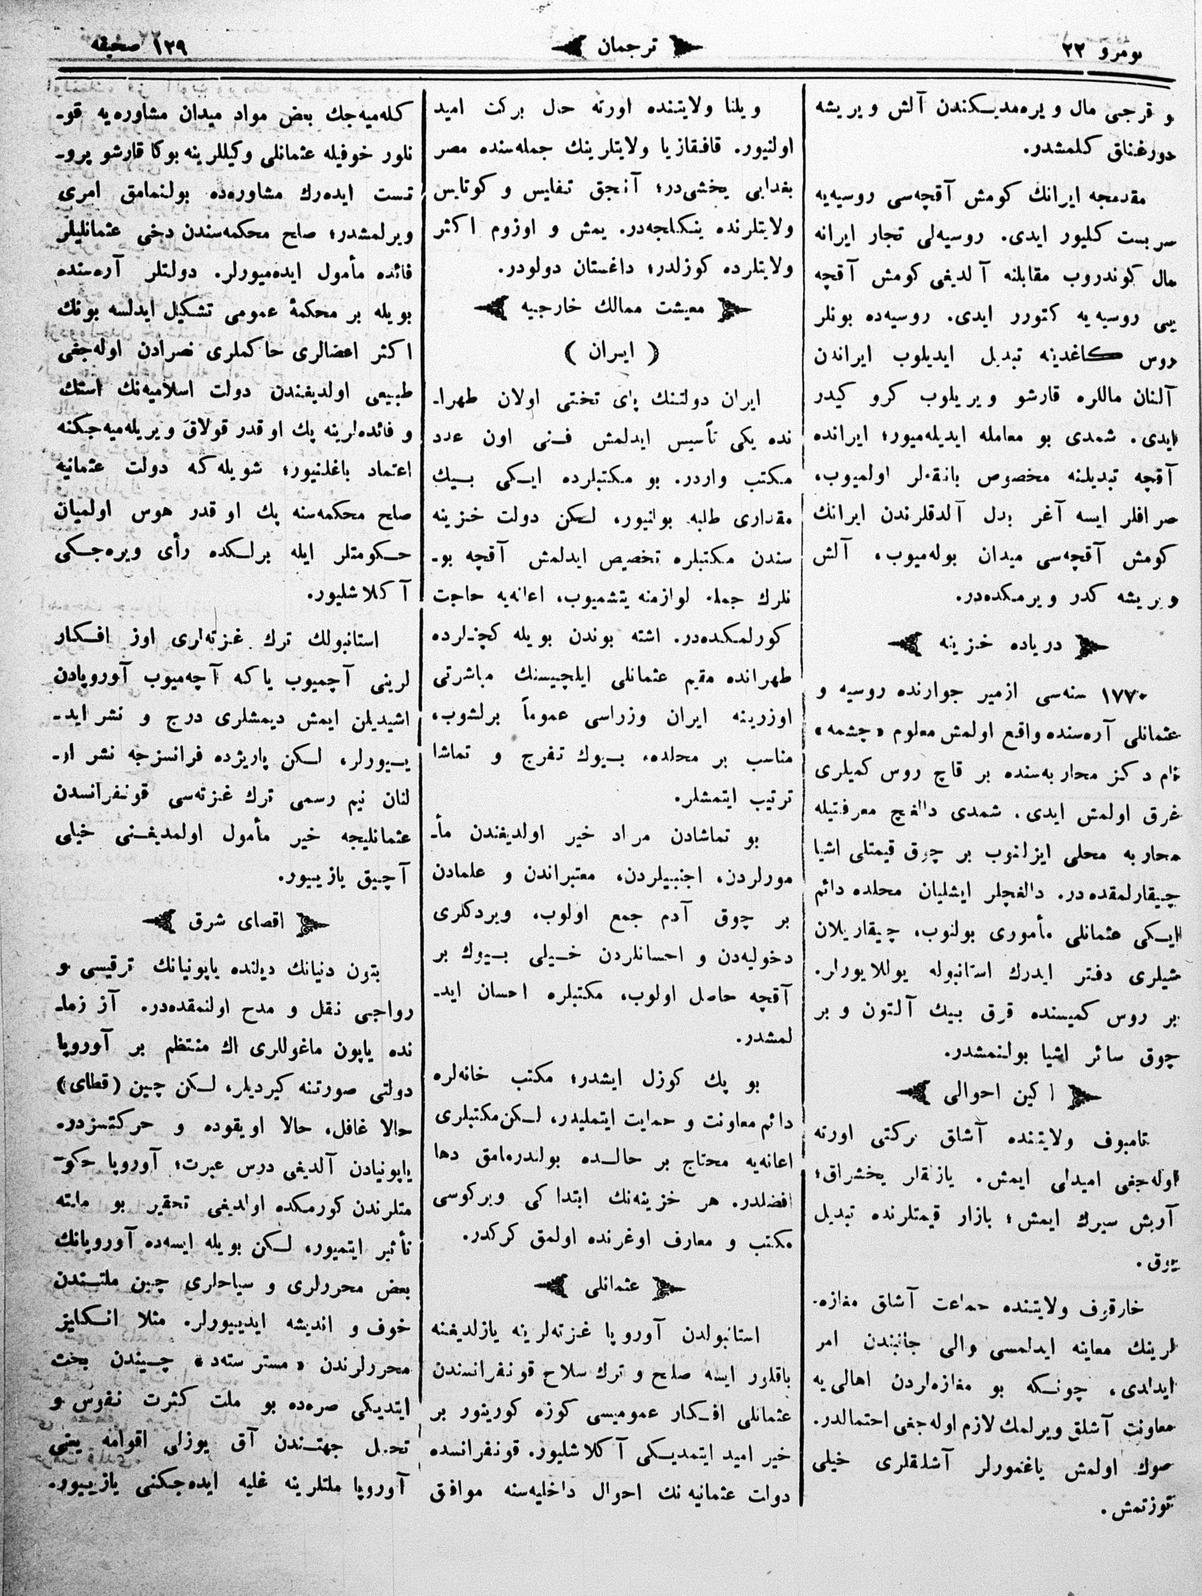 نومرو ٢٢
ترجمان
١٢٩ صحيفه
و قرجی مال ويره‌مديكندن آلش ويريشه
دورغناق كلمشدر.
مقدمجه ايرانك كومش آقچه‌سی روسيه‌يه
سربست كليور ايدی. روسيه‌لی تجار ايرانه
مال كوندروب مقابلنه آلديغی كومش آقچه
يی روسيه‌يه كتورر ايدی. روسيه‌ده بونلر
روس كاغدينه تبديل ايديلوب ايراندن
آلنان ماللره قارشو ويريلوب كرو كيدر
ايدی. شمدی بو معامله ايديله‌ميور؛ ايرانده
آقچه تبديلنه مخصوص بانقه‌لر اولميوب،
صرافلر ايسه آغر بدل آلدقلرندن ايرانك
كومش آقچه‌سی ميدان بوله‌ميوب، آلش
ويريشه كدر ويرمكده‌در.
درياده خزينه
١٧٧٠ سنه‌سی ازمير جوارنده روسيه و
عثمانلی آره‌سنده واقع اولمش معلوم «چشمه»
نام دكز محاربه‌سنده بر قاچ روس كميلری
غرق اولمش ايدی. شمدی دالغچ معرفتيله
محاربه محلی ايزلنوب بر چوق قيمتلی اشيا
چيقارلمقده‌در. دالغچلر ايشليان محلده دائم
ايكی عثمانلی مأموری بولنوب، چيقاريلان
شيلری دفتر ايدرك استانبوله يوللايورلر.
بر روس كميسنده قرق بيك آلتون و بر
چوق سائر اشيا بولنمشدر.
اكين احوالی
تامبوف ولايتنده آشلق بركتی اورته
اوله‌جغی اميدلی ايمش. يازقلر يخشراق؛
آربش سيرك ايمش؛ بازار قيمتلرنده تبديل
يوق.
خارقوف ولايتنده جماعت آشلق مغازه‌
لرينك معاينه ايدلمسی والی جانبندن امر
ايدلدی، چونكه بو مغازه‌لردن اهالی‌يه
معاونت آشلق ويرلمك لازم اوله‌جغی احتمالدر.
صوك اولمش ياغمورلر آشلقلری خيلی
تتوزتمش.
ويلنا ولايتنده اورته حال بركت اميد
اولنيور. قافقازيا ولايتلرينك جمله‌سنده مصر
بغدايی يخشی‌در؛ آنجق تفليس و كوتايس
ولايتلرنده ينكلجه‌در. يمش و اوزوم اكثر
ولايتلرده كوزلدر؛ داغستان دولودر.
معيشت ممالك خارجيه
( ايران )
ايران دولتنك پای تختی اولان طهرا-
نده يكی تأسيس ايدلمش فنی اون عدد
مكتب واردر. بو مكتبلرده ايكی بيك
مقداری طلبه بولنيور، لكن دولت خزينه
سندن مكتبلره تخصيص ايدلمش آقچه بو-
نلرك جمله لوازمنه يتشميوب، اعانه‌يه حاجت
كورلمكده‌در. اشته بوندن بويله كچنلرده
طهرانده مقيم عثمانلی ايلچيسنك مباشرتی
اوزرينه ايران وزراسی عموماً برلشوب،
مناسب بر محلده، بيوك تفرج و تماشا
ترتيب ايتمشلر.
بو تماشادن مراد خير اولديغندن مأ-
مورلردن، اجنبيلردن، معتبراندن و علمادن
بر چوق آدم جمع اولوب، ويردكلری
دخوليه‌دن و احسانلردن خيلی بيوك بر
آقچه حاصل اولوب، مكتبلره احسان ايد-
لمشدر.
بو پك كوزل ايشدر؛ مكتب خانه‌لره
دائم معاونت و حمايت ايتمليدر، لكن مكتبلری
اعانه‌يه محتاج بر حالده بولندرمامق دها
افضلدر. هر خزينه‌نك ابتداكی ويركوسی
مكتب و معارف اوغرنده اولمق كركدر.
عثمانلی
استانبولدن آوروپا غزته‌لرينه يازلديغنه
باقلور ايسه صلح و ترك سلاح قونفرانسندن
عثمانلی افكار عموميسی كوزه كورينور بر
خير اميد ايتمديكی آكلاشليور. قونفرانسده
دولت عثمانيه‌نك احوال داخليه‌سنه موافق
كله‌ميه‌جك بعض مواد ميدان مشاوره‌يه قو-
نلور خوفيله عثمانلی وكيللرينه بوكا قارشو پرو-
تست ايده‌رك مشاوره‌ده بولنمامق امری
ويرلمشدر؛ صلح محكمه‌سندن دخی عثمانليلر
فائده مأمول ايده‌ميورلر. دولتلر آره‌سنده
بويله بر محكمۀ عمومی تشكيل ايدلسه بونك
اكثر اعضالری حاكملری نصرادن اوله‌جغی
طبيعی اولديغندن دولت اسلاميه‌نك استك
و فائده‌لرينه پك اوقدر قولاق ويريله‌ميه‌جكنه
اعتماد باغلنيور؛ شويله‌كه دولت عثمانيه
صلح محكمه‌سنه پك اوقدر هوس اولميان
حكومتلر ايله برلكده رأی ويره‌جكی
آكلاشليور.
استانبولك ترك غزته‌لری اوز افكار
لرينی آچميوب ياكه آچه‌ميوب آوروپادن
اشيديلن ايمش ديمشلری درج و نشر ايد-
ييورلر، لكن پاريژده فرانسزجه نشر او-
لنان نيم رسمی ترك غزته‌سی قونفرانسدن
عثمانليجه خير مأمول اولمديغنی خيلی
آچيق يازييور.
اقصای شرق
بتون دنيانك ديلنده ياپونيانك ترقيسی و
رواجی نقل و مدح اولنمقده‌در. آز زما-
نده ياپون ماغوللری اك منتظم بر آوروپا
دولتی صورتنه كيرديلر، لكن چين (قطای)
حالا غافل، حالا اويقوده و حركتسزدر.
ياپونيادن آلديغی درس عبرت؛ آوروپا حكو-
متلرندن كورمكده اولديغی تحقير بو ملته
تأثير ايتميور، لكن بويله ايسه‌ده آوروپانك
بعض محررلری و سياحلری چين ملتندن
خوف و انديشه ايدييورلر. مثلا انكليز
محررلرندن «مستر سته‌د» چيندن بحث
ايتديكی صره‌ده بو ملت كثرت نفوس و
تحمل جهتندن آق يوزلی اقوامه يعنی
آوروپا ملتلرينه غلبه ايده‌جكنی يازييور.